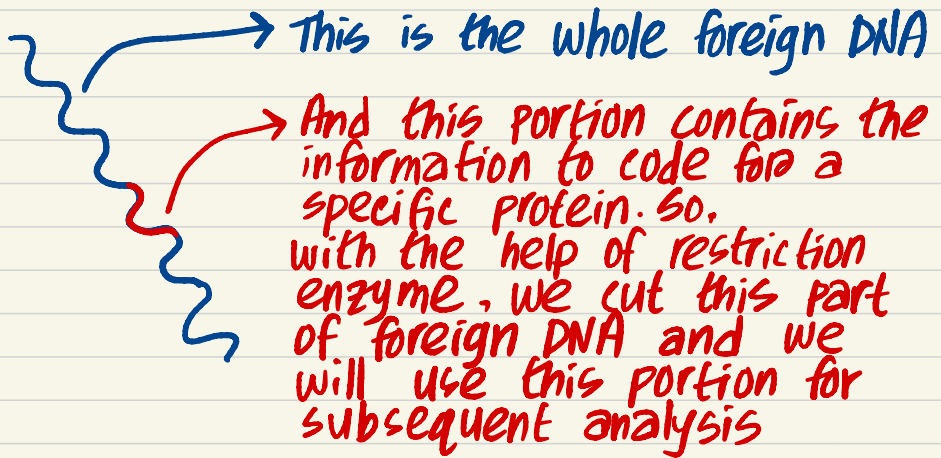 This is the whole foreign DNA
And this portion contains the
information to code for a
specific protein. So,
with the help of restriction
enzyme, we cut this part
of foreign DNA and we
will use this portion for
subsequent analysis